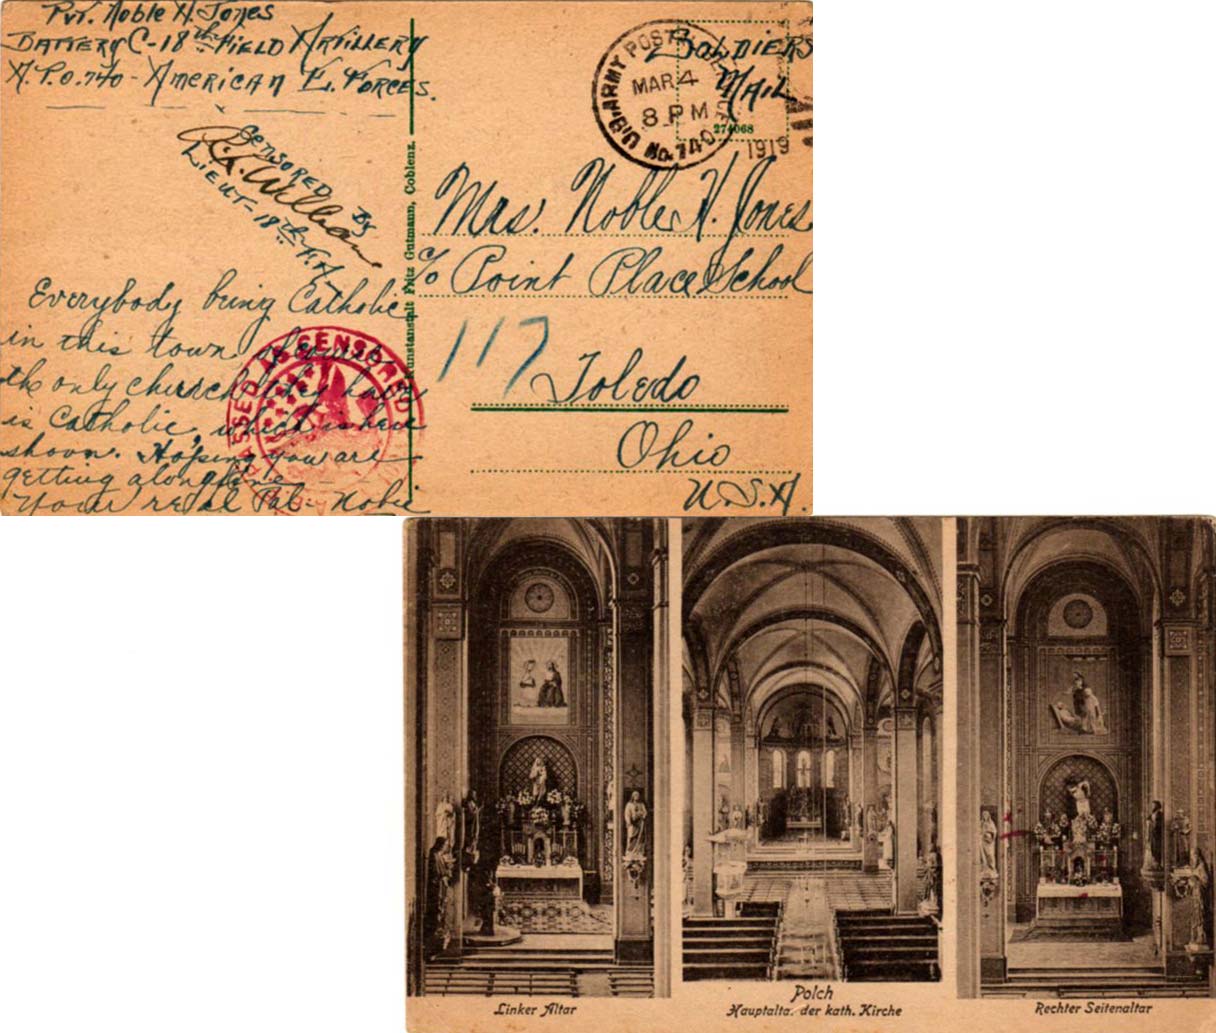 Pvt. Noble H. Jones
Battery C-18th Field Artillery
A.P.O. 740 - American E. Forces.
Censored By
Lieut - 18th F.A.
Everybody being Catholic
in this town, of course,
the only church they have
is Catholic, which is here
shown. Hoping you are
getting along fine -
Your real Pal - Noble
PASSED AS CENSORED
Kunstanstalt Fritz Gutmann, Coblenz.
U.S. ARMY POST
MAR 4
8 PM
No. 740
1919
Soldiers
Mail
274068
Mrs. Noble H. Jones
c/o Point Place School
117
Toledo
Ohio
U.S.A.
Linker Altar
Polch
Hauptalta. der kath. Kirche
Rechter Seitenaltar